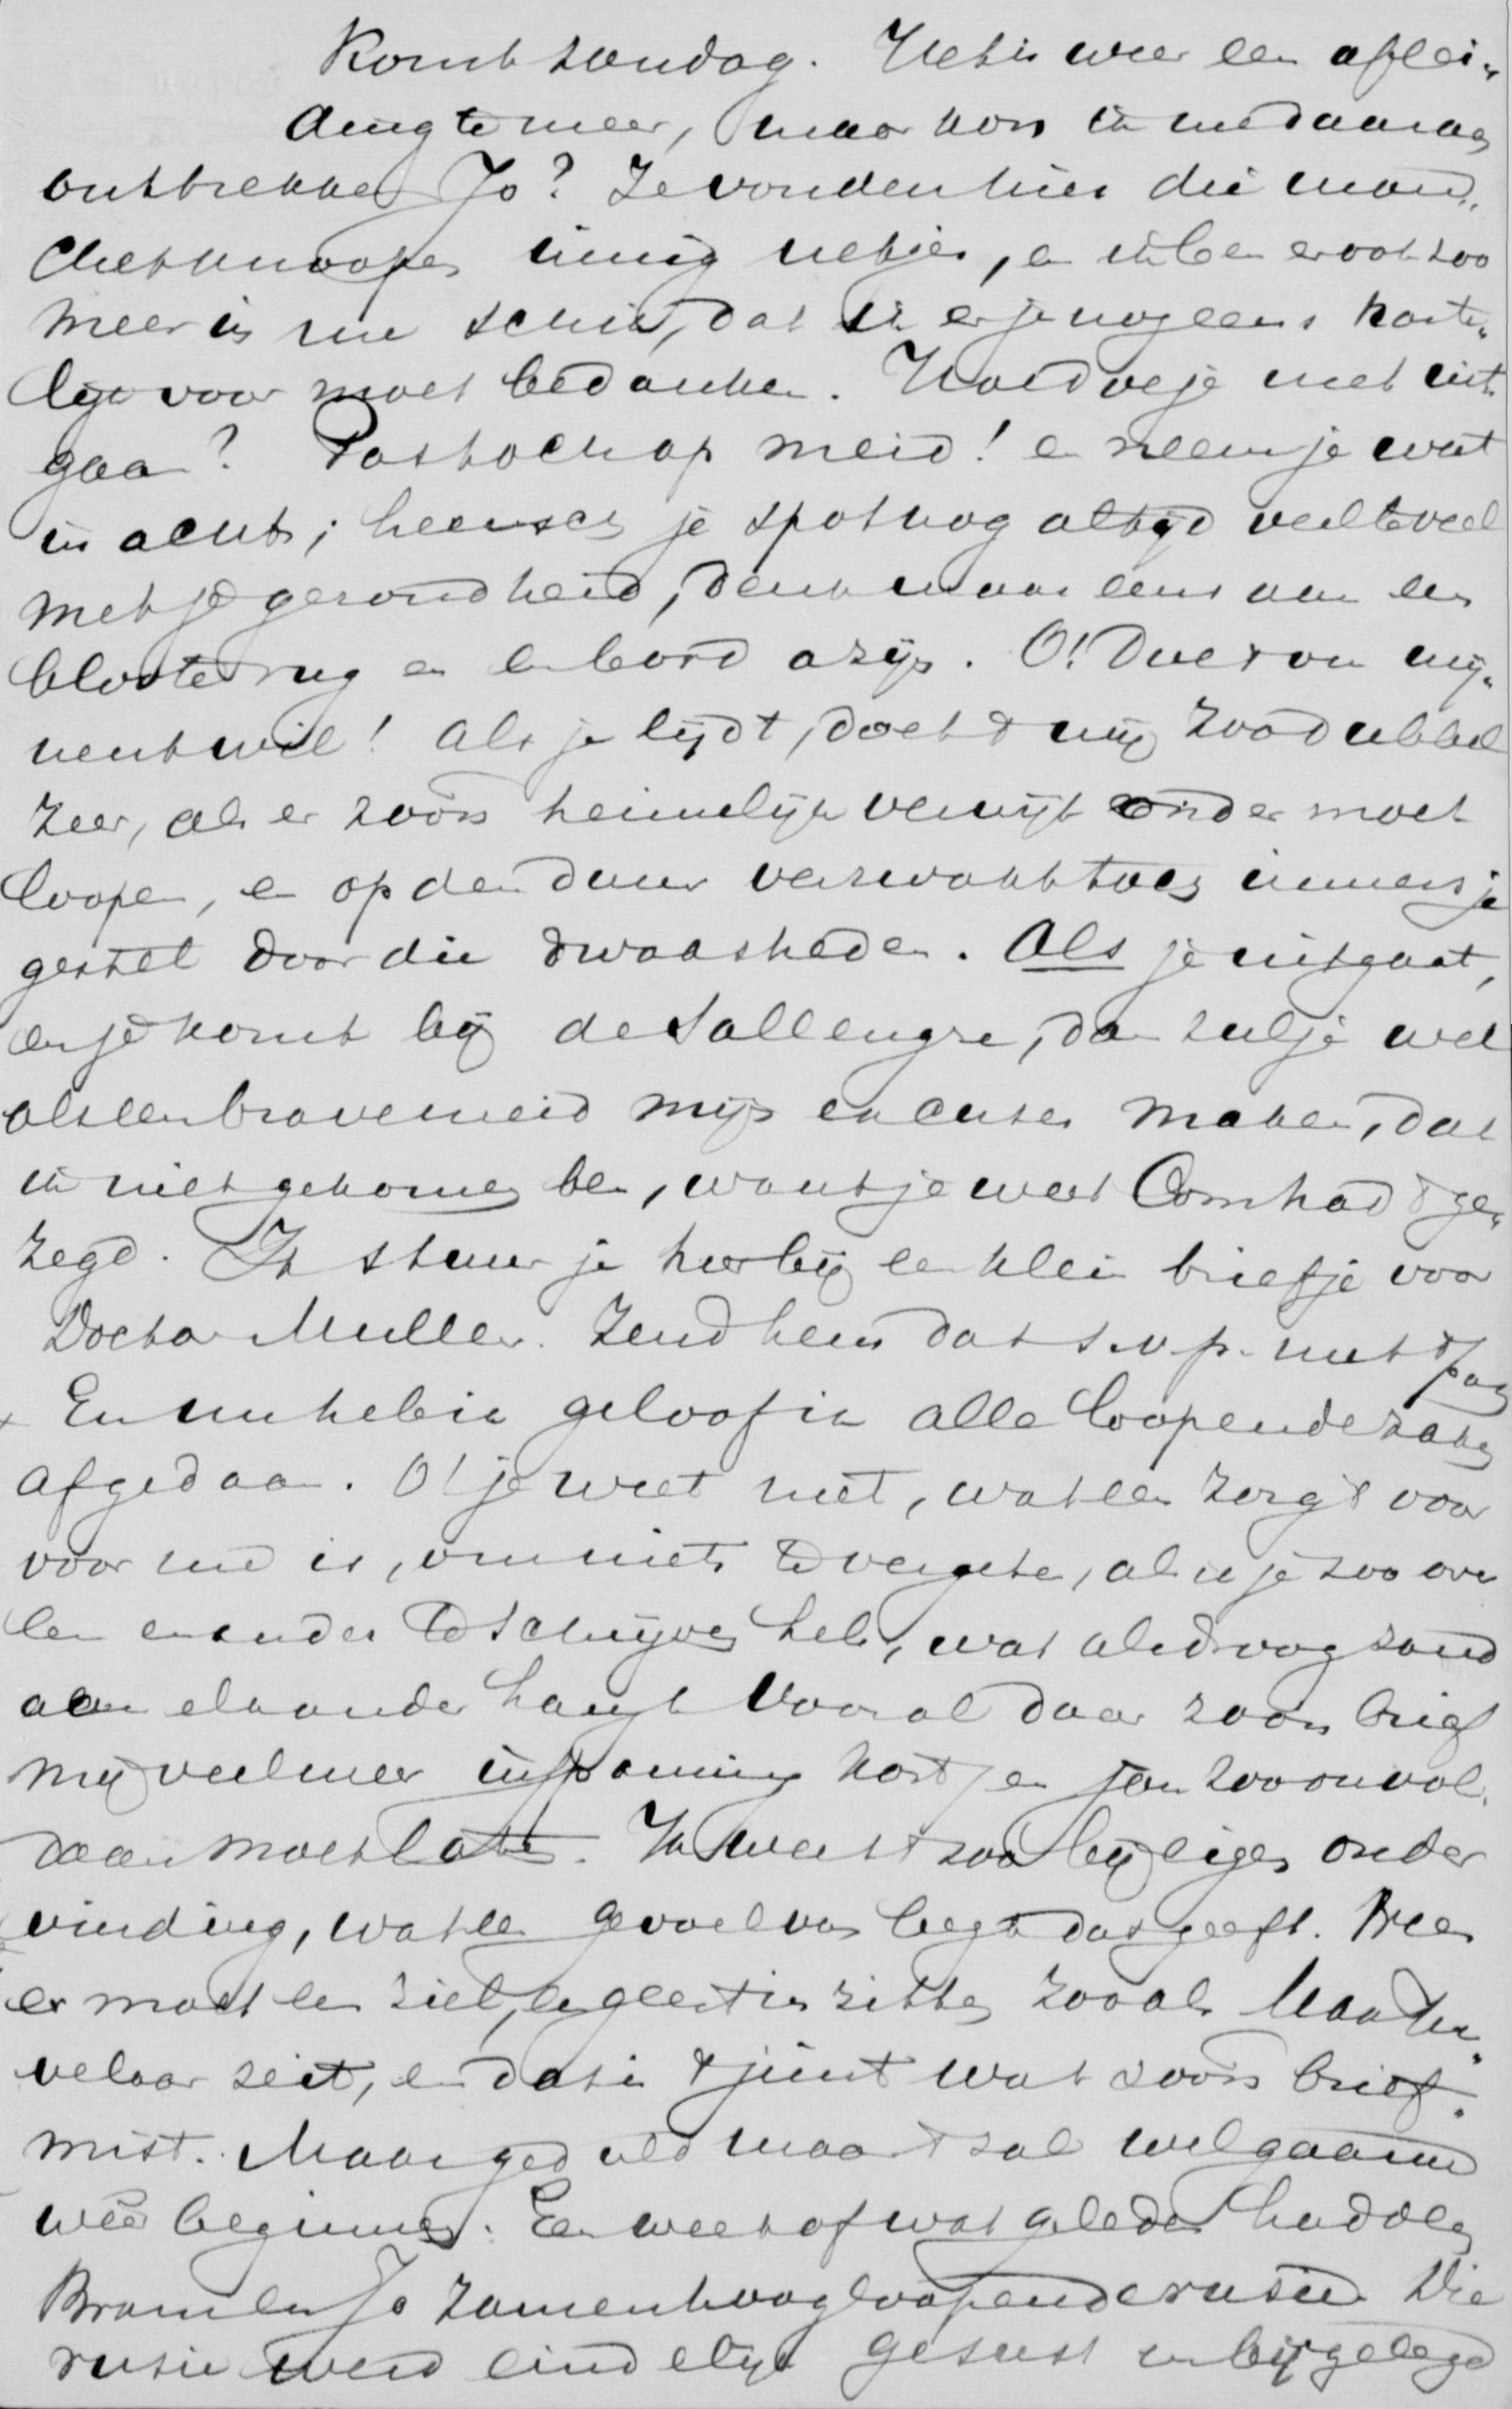 Komt zondag. Het is weer een aflei„
ding te meer, maar kon ik me daaraan
onttrekken Jo? Ze vonden hier die man„
chetknoopen innig netjes, en ik ben er ook zoo
meer in mn schik, dat ik er je nog eens harte„
lijk voor moet bedanken. Hoe is je met uit
gaan? Pas toch op meid! en neem je wat
in acht; heusch je spot nog altijd veel te veel
met je gezondheid, denk maar eens aan een
bloote rug en een bord azijn. O! Doe 't om mij„
nentwil! Als je lijdt, doet 't mij zoo dubbel
zeer, als er zoo'n heimelijk verwijt onder moet
loopen, en op den duur verzwakt toch immers je
gestel door die dwaasheden. Als je uitgaat,
en je komt bij de Sallengre, dan zul je wel
als een brave meid mijn excuses maken, dat
ik niet gekomen ben, want je weet Oom had 't ge„
zegd. Ik stuur je hierbij een klein briefje voor
Doctor Muller. Zend hem dat s.v.p. met
En nu heb ik geloof ik alle loopende zaken
afgedaan. O! je weet niet, wat een zorg 't voor
voor me is, om niets te vergeten, als ik je zoo over
een en ander te schrijven heb, wat als droog zand
aan elkander hangt Vooral daar zoo'n brief
mij veel meer inspanning kost, en jou zoo onvol„
daan moet laten. Ik weet 't zoo bij eigen onder
vinding, wat een gevoel van leegte dat geeft. Neen
er moet een ziel, en geest in zitten zooals
velaar zeit, en dat is 't juist wat zoo'n brief
mist. Maar geduld maar 't zal wel gaan
wéér beginnen. Een week of wat geleden hadden
Bram en Jo zamen hoogloopende rusie. Die
rusie werd eindelijk gesust en bijgelegd